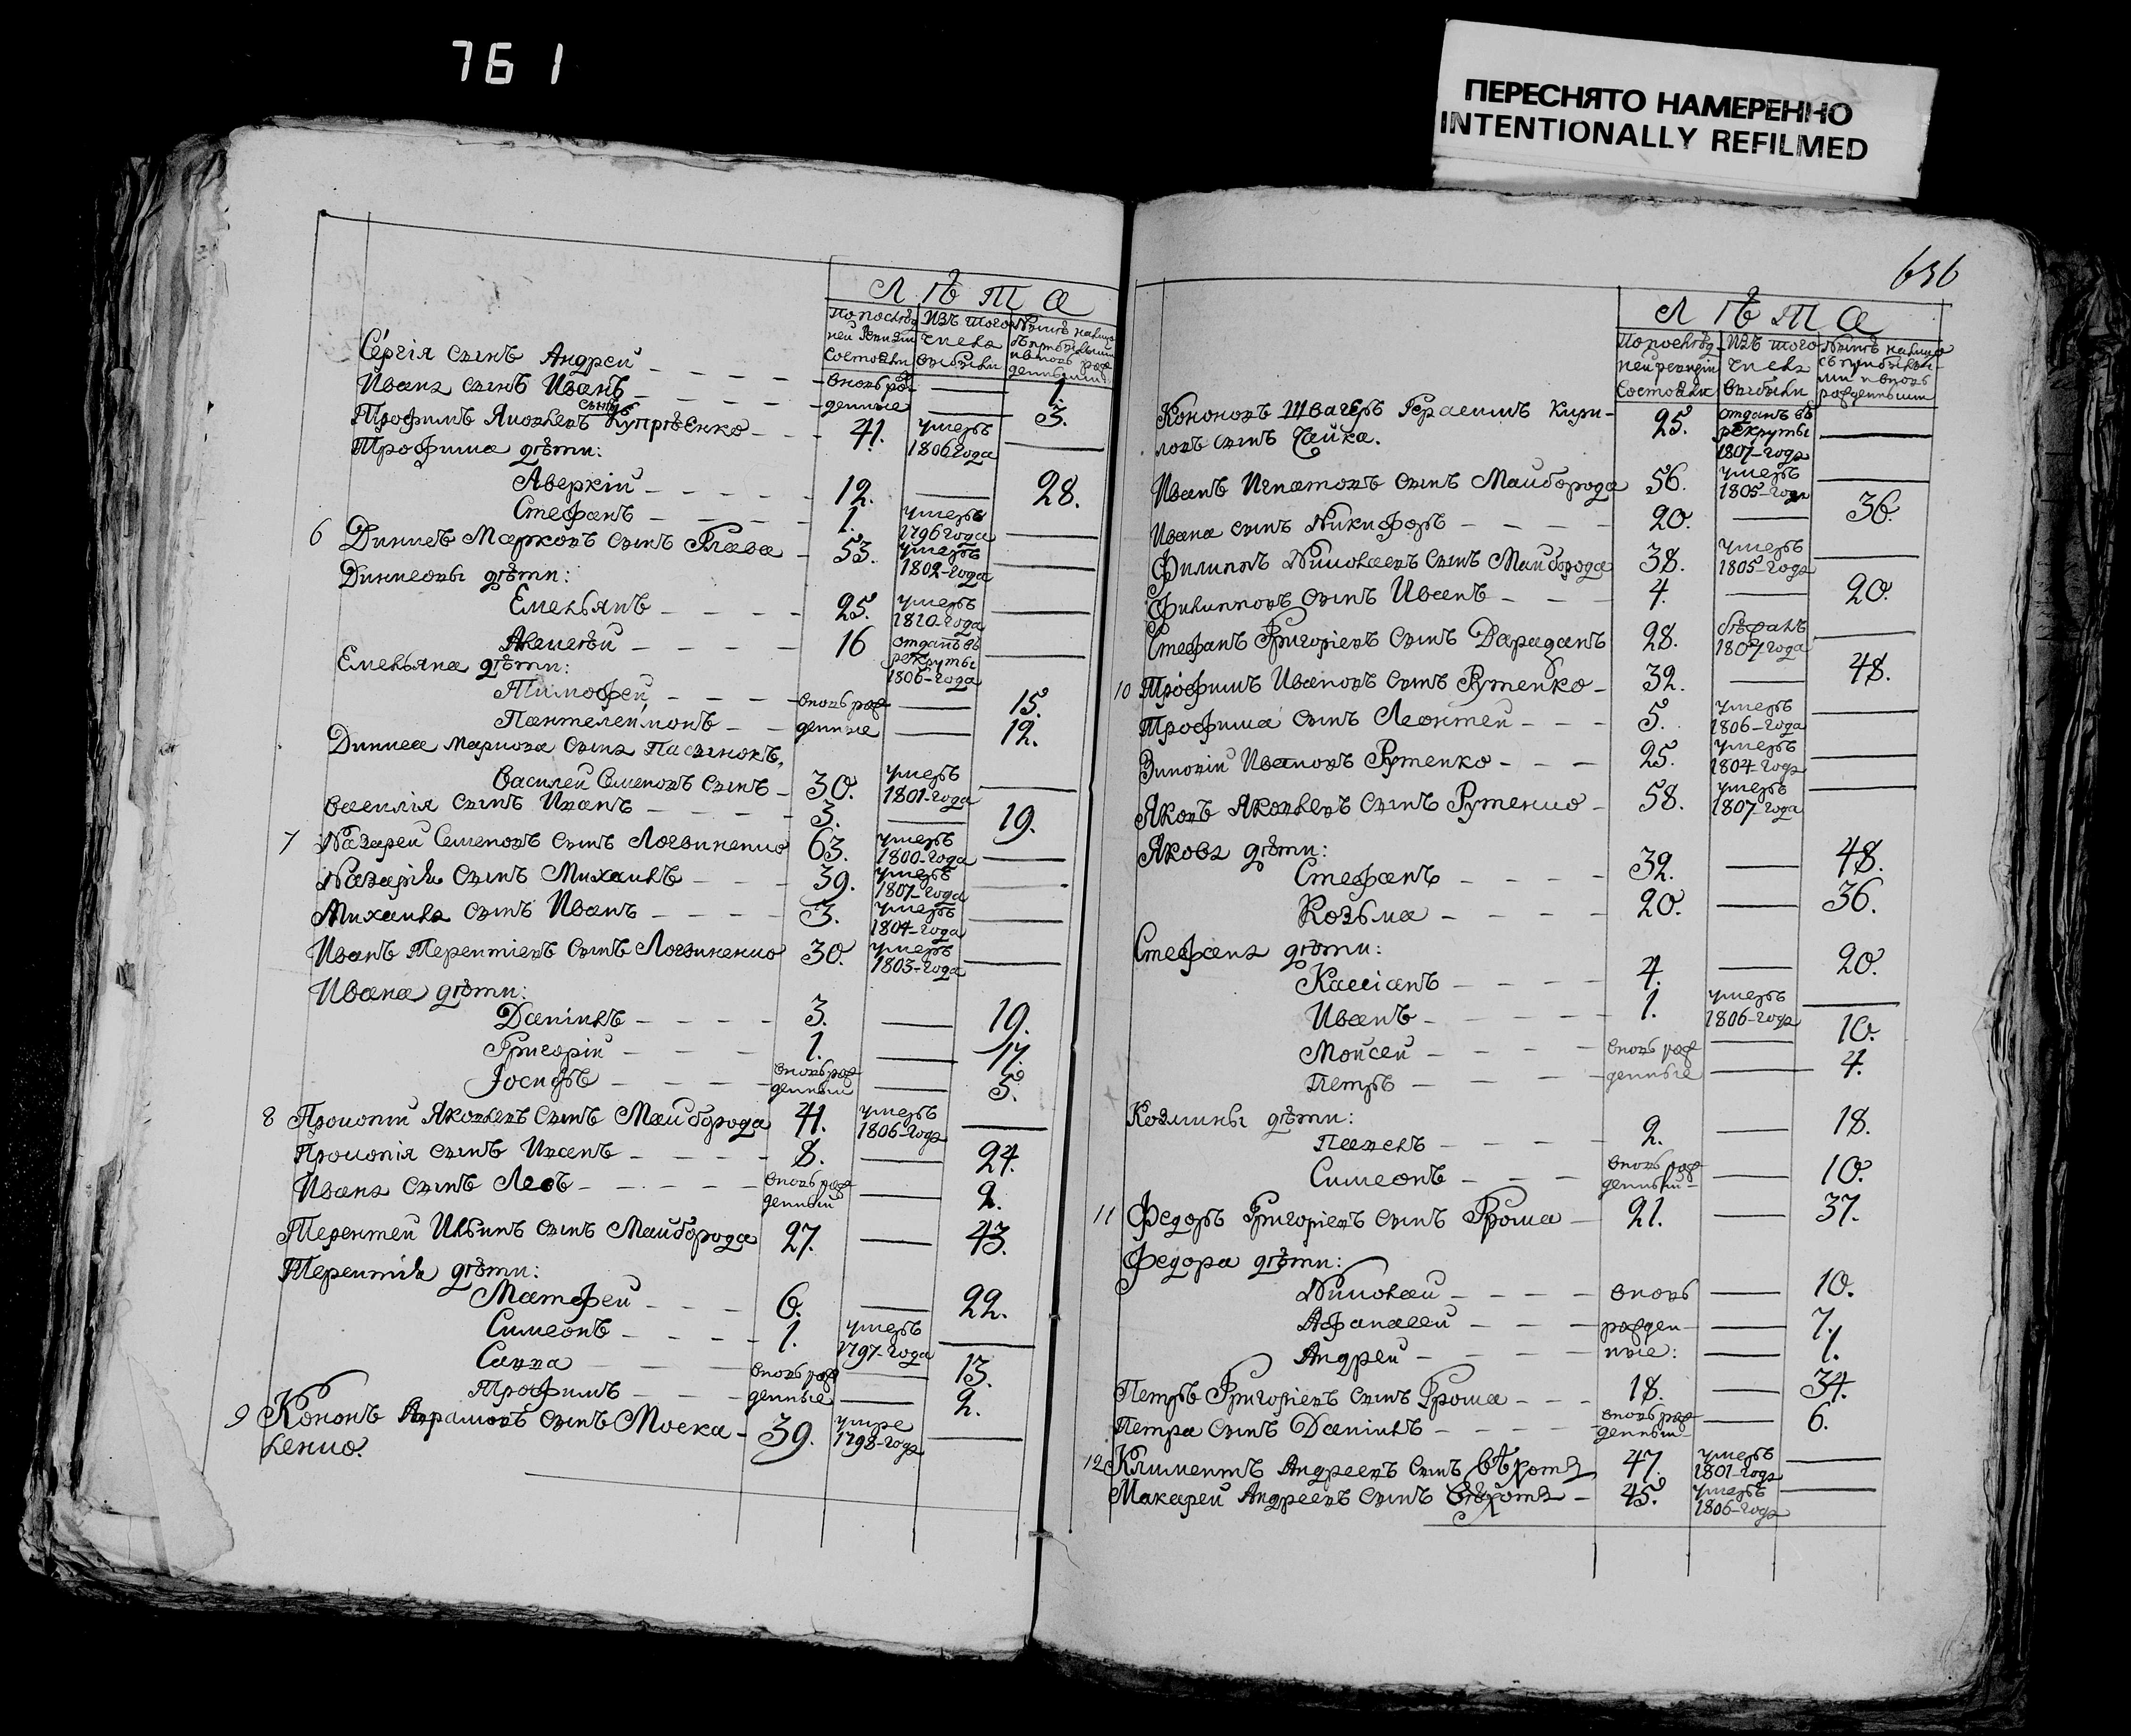 761
ПЕРЕСНЯТО НАМЕРЕННО
INTENTIONALLY REFILMED
ЛѢТА
По послѣд ней ревизіи состояли
Изъ того числа выбыли
Сергія сынъ Андрей вновь ро- 1.
Ивана сынъ Иванъ жденные 3.
Трофимъ Яковлевъ сынъ Купрѣенко 41. умеръ 1806 года
Трофима дѣти:
Аверкій 12. 28.
Стефанъ 1. умеръ 1796 года
6 Марковъ сынъ Глава 53. умеръ 1802-года
дѣти:
Емельянъ 25. умеръ 1810-года
Алексѣй 16 отданъ въ рекруты 1806-года
Емельяна дѣти:
Тимофей вновь рож 15.
Пантелеймонъ денные 12.
Маркова сына пасынокъ,
Василей Семеновъ сынъ 30. умеръ 1801-года
Василія сынъ Иванъ 3. 19.
7 Назарей Семеновъ сынъ Логвиненко 63. умеръ 1800-года
Назарія сынъ Михаилъ 39. умеръ 1807-года
Михаила сынъ Иванъ 3. умеръ 1804-года
Иванъ Терентіевъ сынъ Логвиненко 30. умеръ 1803-года
Ивана дѣти:
Даніилъ 3. 19.
Григорій 1. 17.
Іосифъ вновь рож денный 5.
8 Прокопій Яковлевъ сынъ Майборода 41. умеръ 1806-года
Прокопія сынъ Иванъ 8. 24.
Ивана сынъ Левъ вновь рож денный 2.
Терентей Ильинъ сынъ Майборода 27. 43.
Терентія дѣти:
Матфей 6. 22.
Симеонъ 1. умеръ 1797-года
Савва вновь рож 13.
Трофимъ денные 2.
9 Кононъ Аврамовъ сынъ Моска- 39. умре 1798-года
ленко.
636
ЛѢТА
По послѣд ней ревизіи состояли
Изъ того числа выбыли
Нынѣ на лицо съ прибылы- ми и вновь рожденными
Кононовъ Швагеръ Герасимъ Кири- 25. отданъ въ рекруты 1807-года
ловъ сынъ Чайка.
Иванъ Игнатовъ сынъ Майборода 56. умеръ 1805-года
Ивана сынъ Никифоръ 20. 36.
Филипъ Николаевъ сынъ Майборода 38. умеръ 1805-года
Филиповъ сынъ Иванъ 4. 20.
Стефанъ Григоріевъ сынъ Дараданъ 28. бѣжалъ 1807 года
10 Трофимъ Ивановъ сынъ Рутенко 32. 48.
Трофима сынъ Леонтей 5. умеръ 1806-года
Зиновій Ивановъ Рутенко 25. умеръ 1804-года
Яковъ Яковлевъ сынъ Рутенко 58. умеръ 1807-года
Якова дѣти:
Стефанъ 32. 48.
Козьма 20. 36.
Стефана дѣти:
Кассіанъ 4. 20.
Иванъ 1. умеръ 1806-года
Мойсей вновь рож 10.
Петръ денные 4.
Козмины дѣти:
Павелъ 2. 18.
Симеонъ вновь рож денный 10.
11 Федоръ Григоріевъ сынъ Гроша 21. 37.
Федора дѣти:
Николай вновь 10.
Афанасей рожден 7.
Андрей ные: 1.
Петръ Григоріевъ сынъ Гроша 18. 34.
Петра сынъ Даніилъ вновь рож денный 6.
12 Климентъ Андреевъ сынъ 47. умеръ 1801-года
Макарей Андреевъ сынъ 45. умеръ 1806-года